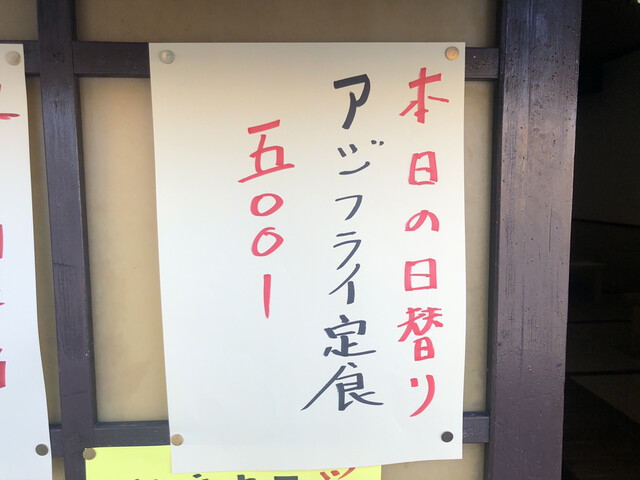 本日の日替り
アジフライ定食
五〇〇ー